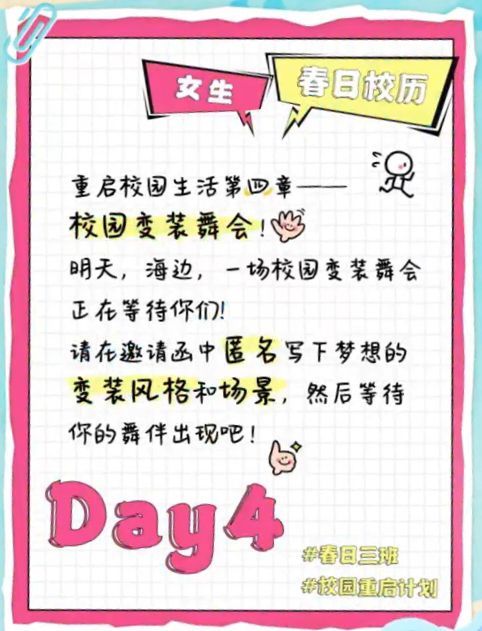 女生
春日校历
重启校园生活第四章——
校园变装舞会!
明天，海边，一场校园变装舞会
正在等待你们!
请在邀请函中匿名写下梦想的
变装风格和场景，然后等待
你的舞伴出现吧!
Day4
#春日三班
#校园重启计划